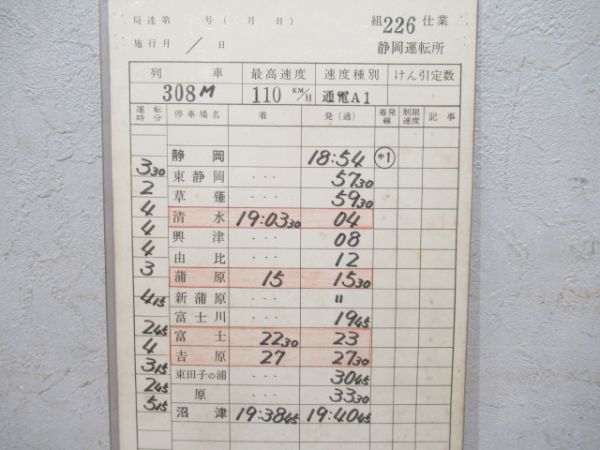 局達第 号(一 月 日) 組226仕業
施行月 / 日 静岡運転所
列 車 最高速度 速度種別 けん引定数
308M 110 KM/H 通電A1
運転時分 停車場名 着 発(通) 着発線 制限速度 記事
静岡 18:54 中1
3 30 東静岡 ... 57 30
2 草薙 ... 59 30
4 清水 19:03 30 04
4 興津 ... 08
4 由比 ... 12
3 蒲原 15 15 30
新蒲原 ... 〃
4 15 富士川 ... 19 45
2 45 富士 22 30 23
4 吉原 27 27 30
3 15 東田子の浦 ... 30 45
2 45 原 ... 33 30
5 15 沼津 19:38 45 19:40 45